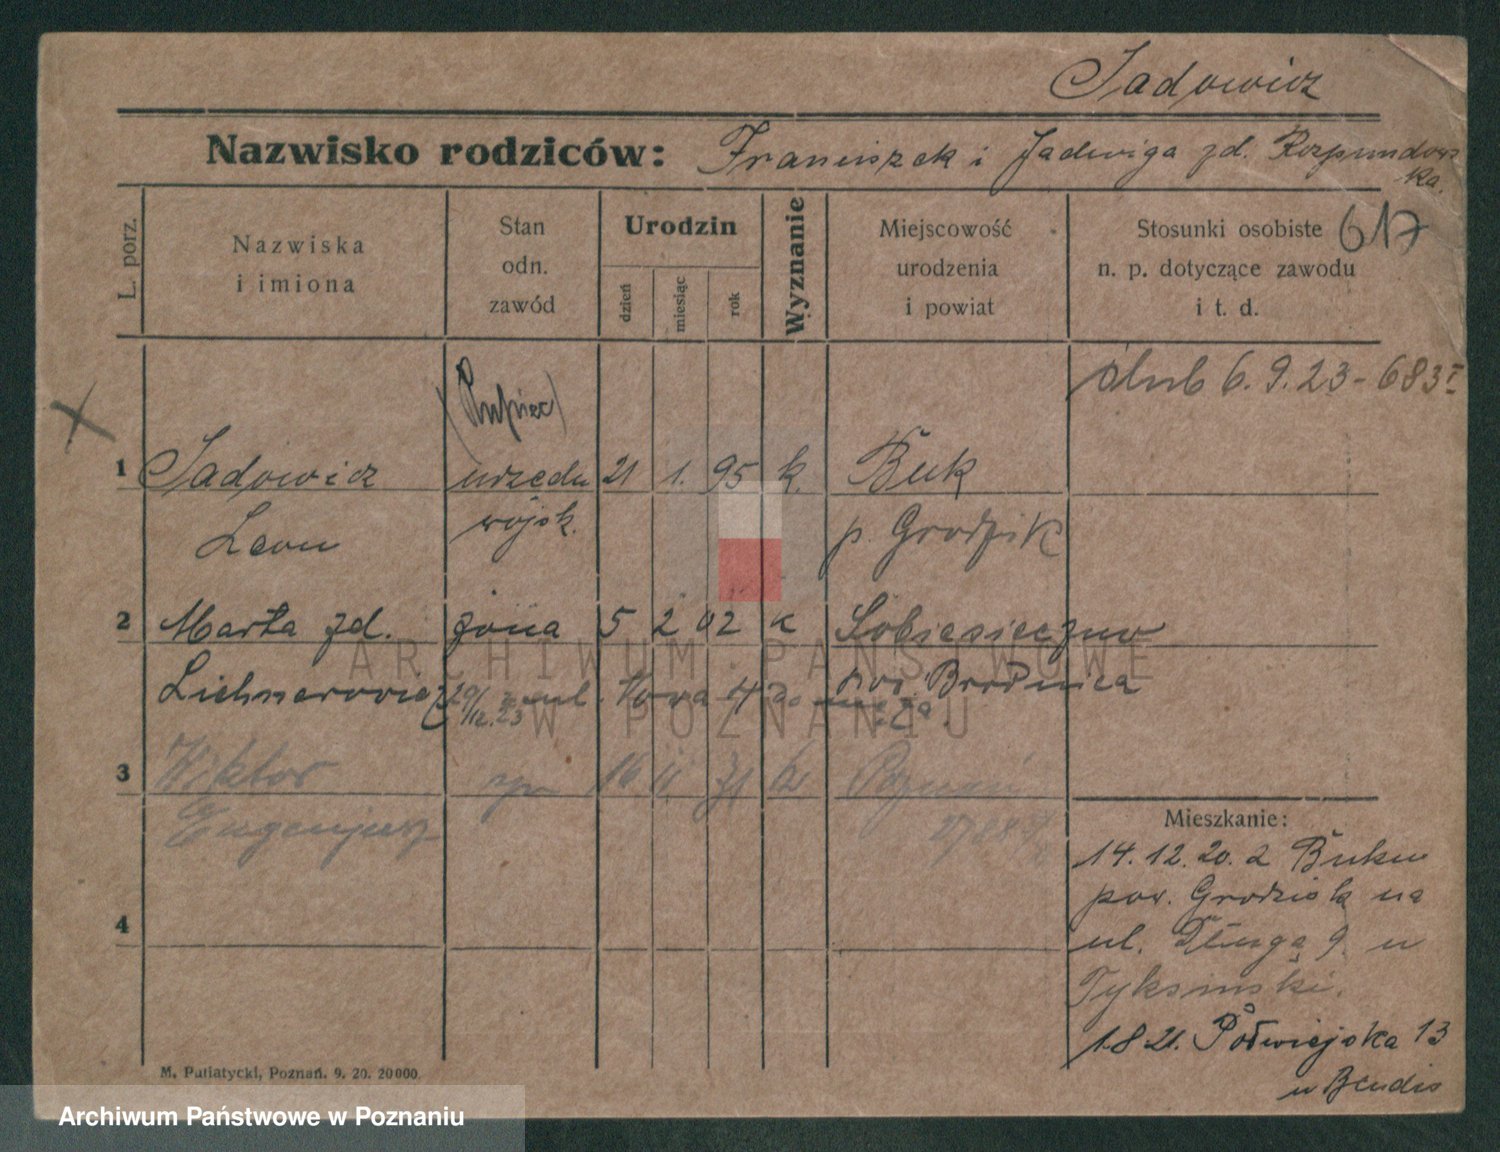 Sadowicz
Nazwisko rodziców: Franciszek i Jadwiga zd. Rozpendows
ka.
L. porz.
Nazwiska
i imiona
Stan
odn.
zawód
Urodzin
dzień
miesiąc
rok
Wyznanie
Miejscowość
urodzenia
i powiat
Stosunki osobiste
n. p. dotyczące zawodu
i t. d.
617
ślub 6.9.23 - 683 I
(Kupiec)
1 Sadowicz urzędn 21 1. 95 k. Buk
Leon wojsk. p. Grodzisk
2 Marta zd. żona 5 2 02 k Sobiesierzno
Lichnerowicz 20/12.23 ul. Nowa 4 do męża. pow. Brodnica
3 Wiktor syn 16 11 k Poznań
Eugenjusz
4
Mieszkanie:
14.12.20. z Buku
pow. Grodzisk na
ul. Długą 9. u
Tyksiński.
1.8 21. Półwiejska 13
u Bendis
M. Putiatycki, Poznań. 9. 20. 20000.
ARCHIWUM PAŃSTWOWE
W POZNANIU
Archiwum Państwowe w Poznaniu